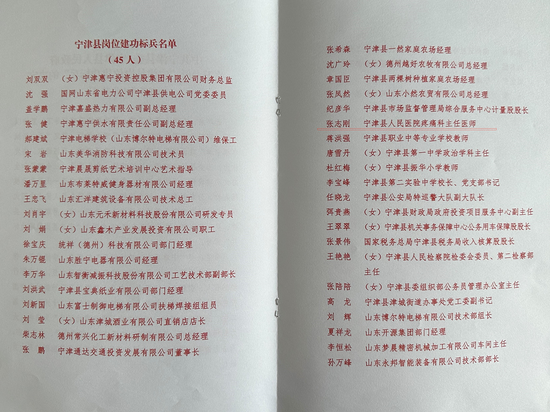 宁津县岗位建功标兵名单
(45人)
刘双双 (女)宁津惠宁投资控股集团有限公司财务总监
沈强 国网山东省电力公司宁津县供电公司党委委员
盖学鹏 宁津嘉盛热力有限公司副总经理
张健 宁津惠宁供水有限责任公司副总经理
郝建斌 宁津电梯学校(山东博尔特电梯有限公司)维保工
宋岩 山东美华消防科技有限公司技术员
张蒙蒙 宁津晨晟剪纸艺术培训中心艺术指导
潘万里 山东布莱特威健身器材有限公司经理
王志飞 山东汇洋建筑设备有限公司技术总工
刘肖宇 (女)山东元禾新材料科技股份有限公司研发专员
刘娟 (女)山东鑫木产业发展投资有限公司职工
徐宝庆 统祥(德州)科技有限公司部门经理
朱万锟 山东胜宁电器有限公司经理
李万华 山东智衡减振科技股份有限公司工艺技术部副部长
刘洪武 宁津县宝典纸业有限公司部门经理
刘新国 山东富士制御电梯有限公司扶梯焊接组组员
刘莹 (女)山东津城酒业有限公司直销店店长
柴志林 德州常兴化工新材料研制有限公司经理
张鹏 宁津通达交通投资发展有限公司董事长
张希森 宁津县一然家庭农场经理
沈广玲 (女)德州越好农牧有限公司总经理
章国臣 宁津县两棵树种植家庭农场经理
张凤然 (女)山东小然农贸有限公司总经理
纪彦华 宁津县市场监督管理局综合服务中心计量股股长
张志刚 宁津县人民医院疼痛科主任医师
蒋洪强 宁津县职业中等专业学校教师
唐雪丹 (女)宁津县第一中学政治学科主任
杜红梅 (女)宁津县振华小学教师
李宝峰 宁津县第二实验中学校长、党支部书记
任晓龙 宁津县公安局特巡警大队副大队长
弭贵燕 (女)宁津县财政局政府投资项目服务中心副主任
王翠翠 (女)宁津县机关事务保障中心公务用车保障股股长
张景伟 国家税务总局宁津县税务局收入核算股股长
王艳艳 (女)宁津县人民检察院检委会委员、第二检察部
主任
张陪陪 (女)宁津县委组织部公务员管理办公室主任
高龙 宁津县津城街道办事处党工委副书记
刘辉 山东博尔特电梯有限公司技术部组长
夏祥龙 山东开源集团部门经理
李恒松 山东梦晨精密机械加工有限公司车间主任
孙万峰 山东永邦智能装备有限公司技术部部长